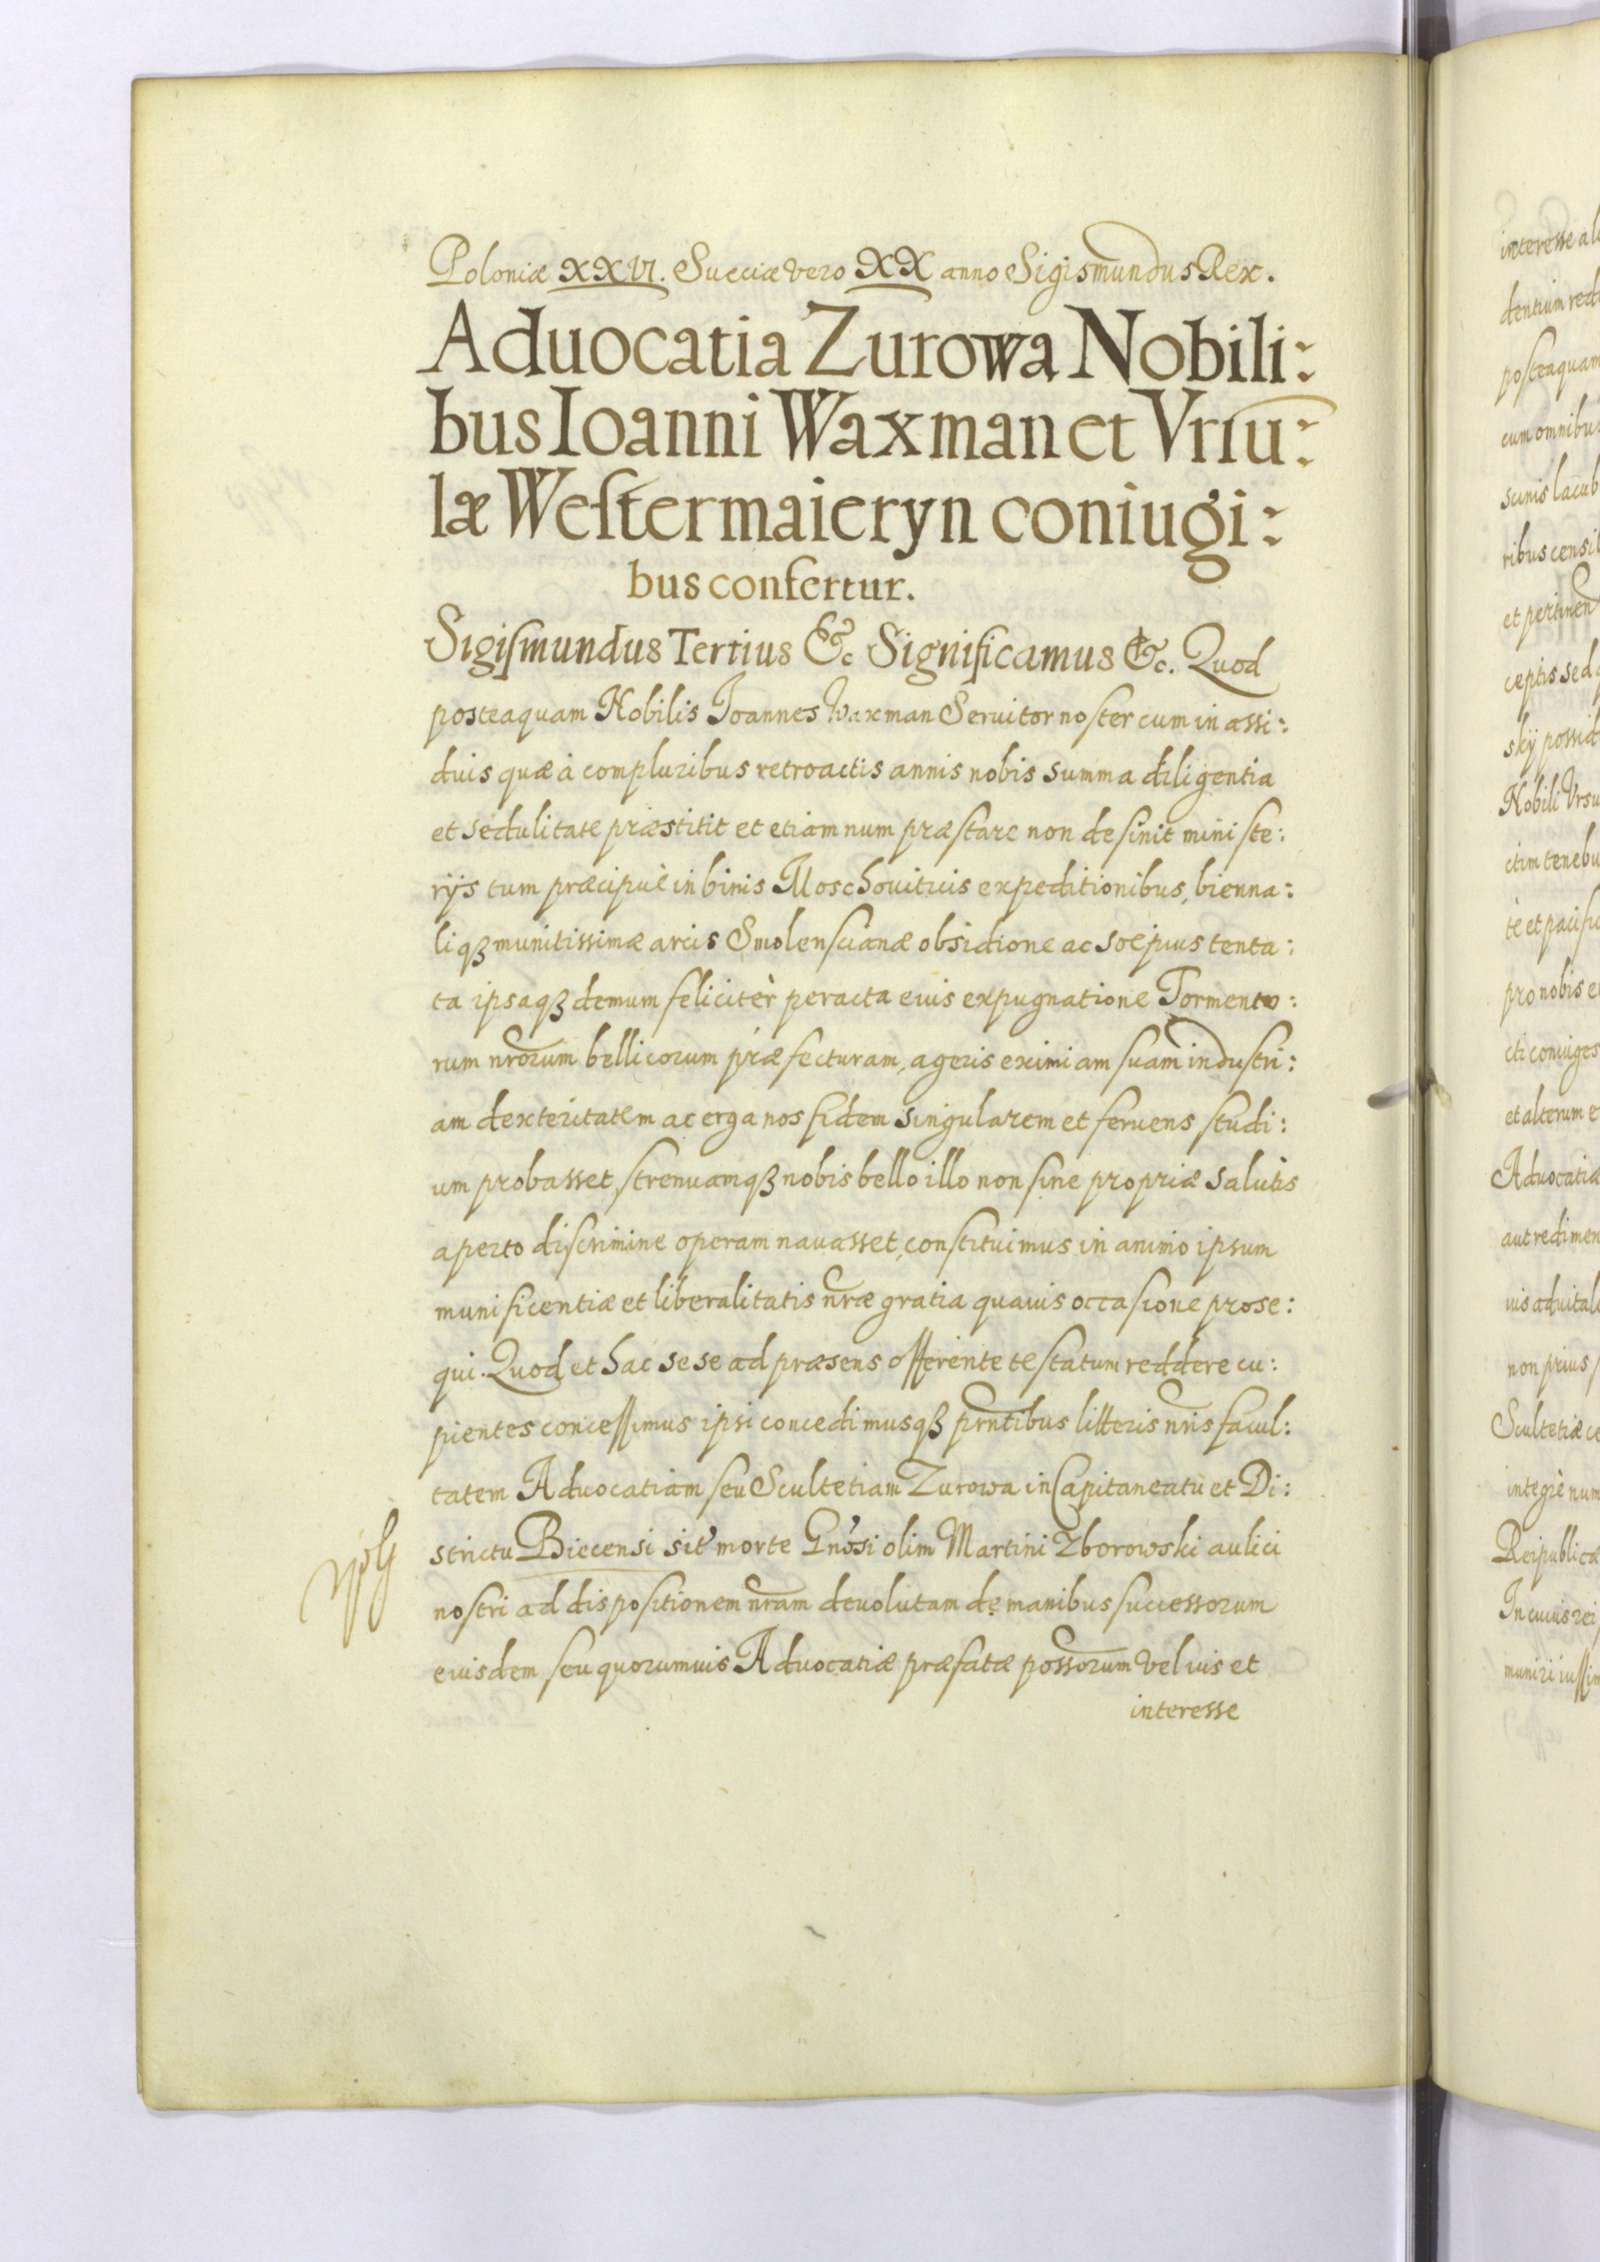 Poloniæ XXVI. Sueciæ vero XX anno Sigismundus Rex.
Aduocatia Zurowa Nobili:
bus Ioanni Waxman et Vrſu:
læ Weſtermaieryn coniugi:
bus confertur.
Sigiſmundus Tertius &c Significamus &c. Quod
posteaquam Nobilis Joannes Waxman Seruitor noster cum in assi:
duis quæ à compluribus retroactis annis nobis summa diligentia
et sedulitate præstitit et etiamnum præstare non desinit ministe:
rijs tum præcipuè in binis Moschouiticis expeditionibus, bienna:
liqꝫ munitissimæ arcis Smolenscianæ obsidione ac sæpius tenta:
ta ipsaqꝫ demum felicitèr peracta eius expugnatione Tormento:
rum nrorum bellicorum præfecturam, ageris eximiam suam industri:
am dexteritatem ac erga nos fidem singularem et feruens studi:
um probasset, strenuamqꝫ nobis bello illo non sine propriæ salutis
aperto discrimine operam nauasset, constituimus in animo ipsum
munificentiæ et liberalitatis nræ gratia quauis occasione prose:
qui. Quod et hac sese ad præsens offerente testatum reddere cu:
pientes concessimus ipsi concedimusqꝫ prntibus litteris nris facul:
tatem Aduocatiam seu Scultetiam Zurowa in Capitaneatu et Di:
strictu Biecensi sit' morte Gnosi olim Martini Zborowski aulici
nostri ad dispositionem nram deuolutam de manibus successorum
eiusdem seu quorumuis Aduocatiæ præfatæ possorum vel ius et
interesse